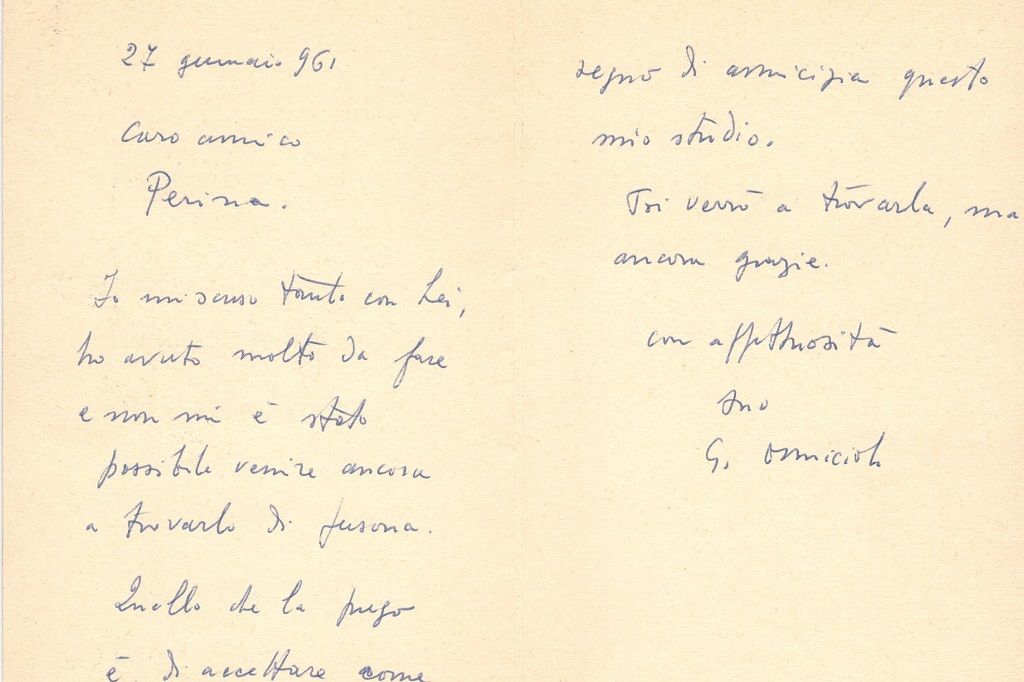 27 gennaio 961
Caro amico
Perina.
Io mi scuso tanto con Lei,
ho avuto molto da fare
e non mi è stato
possibile venire ancora
a trovarlo di
Quello che la prego
è di accettare come
segno di amicizia questo
mio studio.
Poi verrò a trovarla, ma
ancora grazie.
con affettuosità
suo
G.